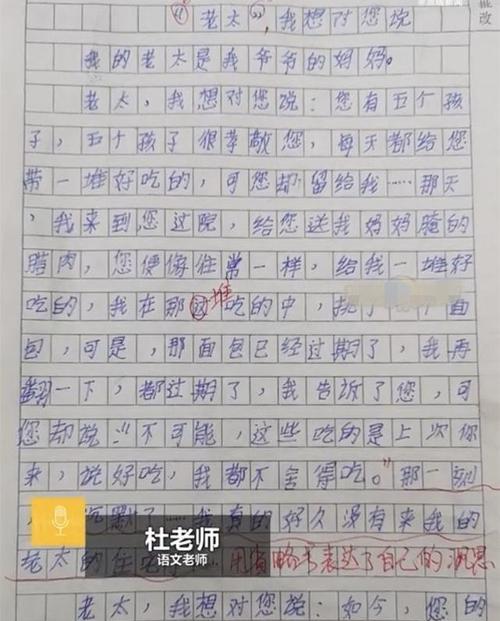 批改
“老太”，我想对您说
我的老太是我爷爷的妈妈。
老太，我想对您说：您有五个孩
子，五个孩子很孝敬您，每天都给您
带一堆好吃的，可您却留给我……那天
，我来到您过院，给您送我妈妈腌的
腊肉，您便像往常一样，给我一堆好
吃的，我在那这堆吃的中，挑了 面
包，可是，那面包已经过期了，我再
翻一下，都过期了，我告诉了您，可
您却说：“不可能，这些吃的是上次你
来，说好吃，我都不舍得吃。”那一刻
，沉默了……我真的好久没有来我的
老太的住 用省略号表达了自己的沉思
老太，我想对您说：如今，您的
杜老师
语文老师